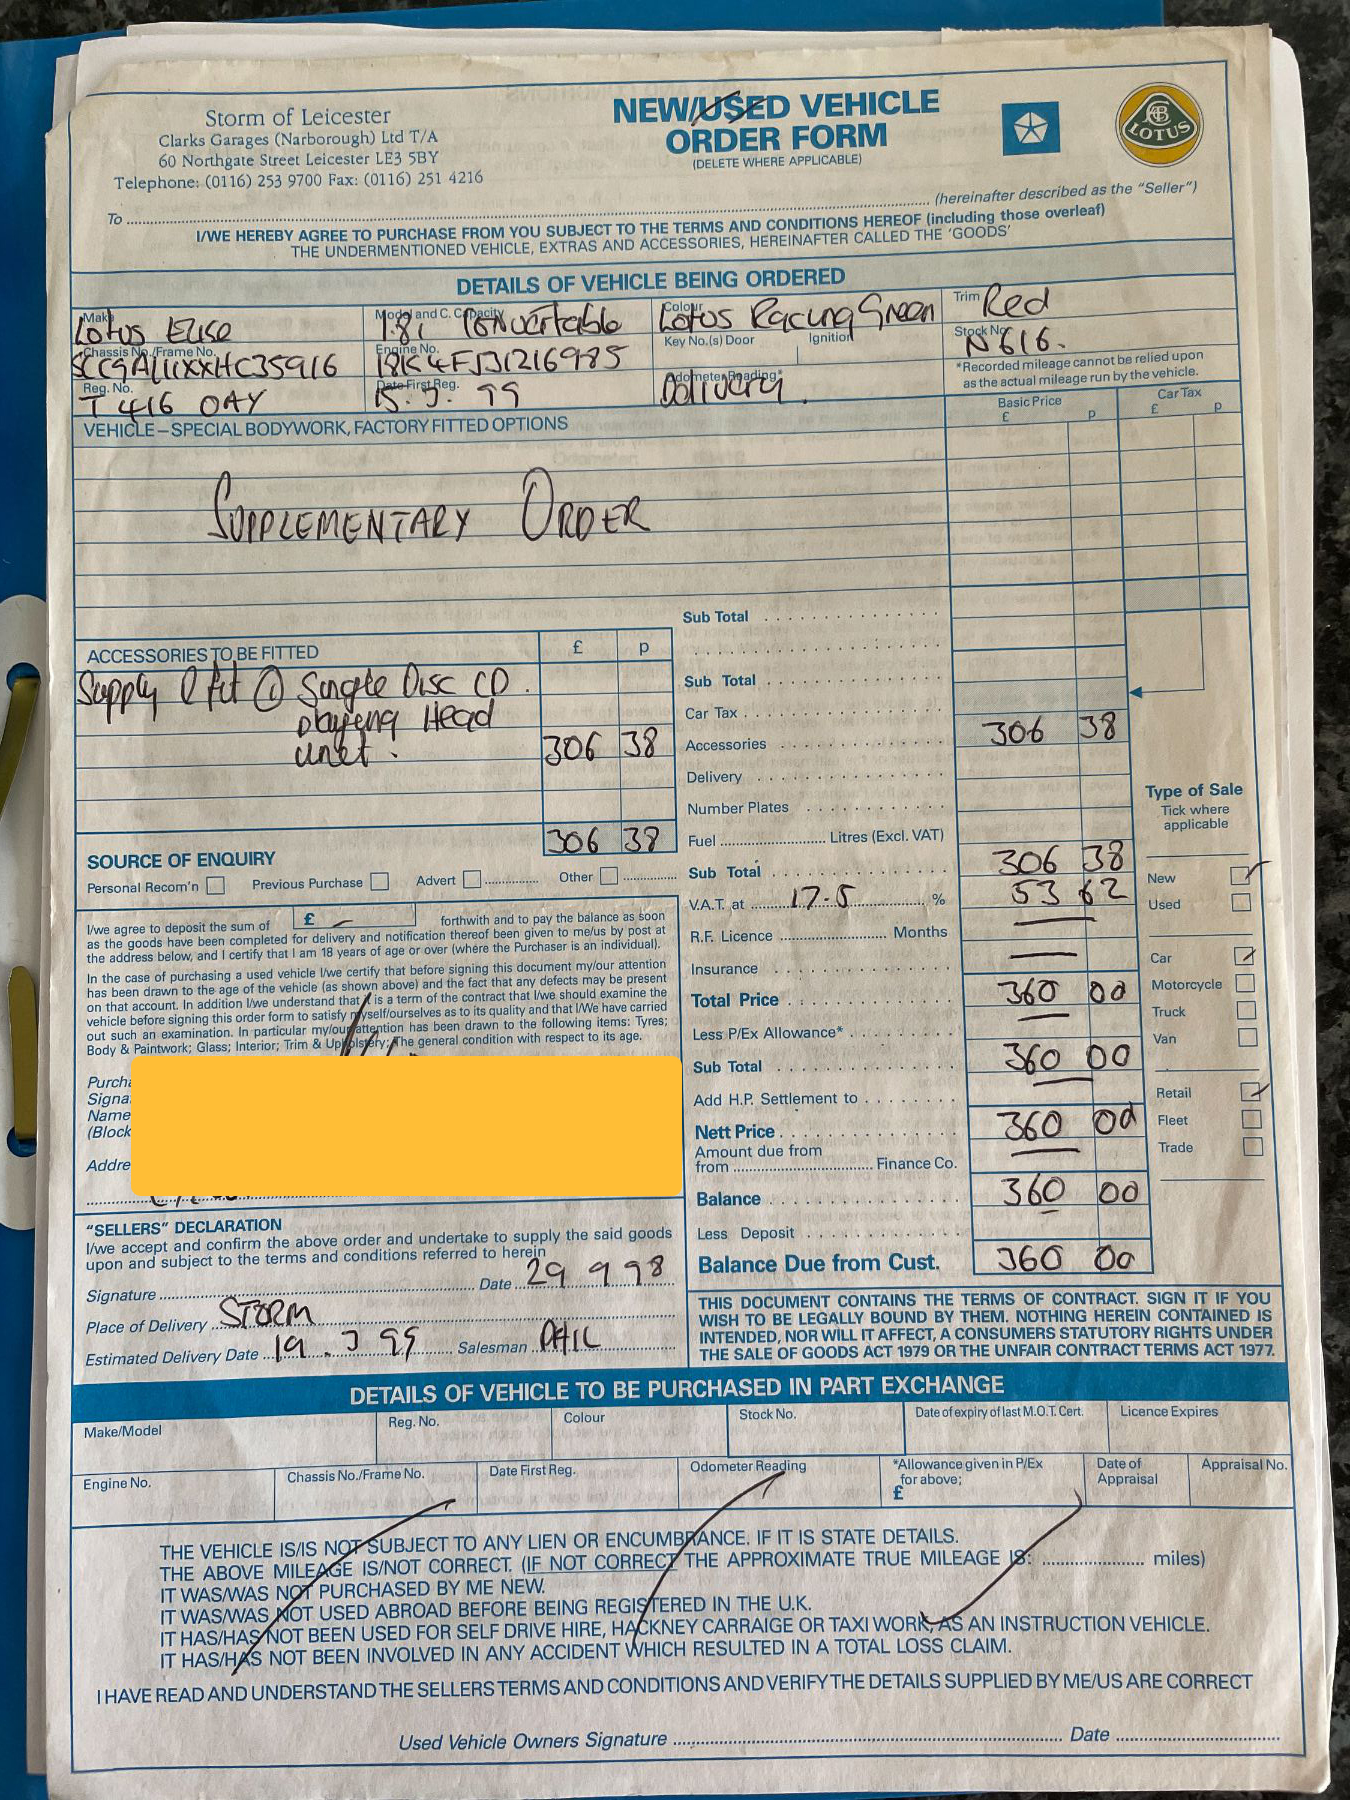 Storm of Leicester
Clarks Garages (Narborough) Ltd T/A
60 Northgate Street Leicester LE3 5BY
Telephone: (0116) 253 9700 Fax: (0116) 251 4216
NEW/USED VEHICLE
ORDER FORM
(DELETE WHERE APPLICABLE)
LOTUS
To (hereinafter described as the "Seller")
I/WE HEREBY AGREE TO PURCHASE FROM YOU SUBJECT TO THE TERMS AND CONDITIONS HEREOF (including those overleaf)
THE UNDERMENTIONED VEHICLE, EXTRAS AND ACCESSORIES, HEREINAFTER CALLED THE 'GOODS'
DETAILS OF VEHICLE BEING ORDERED
Make Lotus Elise
Model and C. Capacity 1.8i Convertable
Colour Lotus Racing Green
Trim Red
Chassis No./Frame No.
Engine No. 18K4FJ31216985
Key No.(s) Door Ignition
Stock No. N616.
Reg. No. T 416 OAY
Date First Reg. 15. 3. 99
Odometer Reading* Delivery.
*Recorded mileage cannot be relied upon
as the actual mileage run by the vehicle.
VEHICLE – SPECIAL BODYWORK, FACTORY FITTED OPTIONS
Basic Price
£ p
Car Tax
£ p
SUPPLEMENTARY ORDER
Sub Total
ACCESSORIES TO BE FITTED £ p
Supply & fit @ Single Disc CD.
playing Head
unit. 306 38
306 38
Sub Total
Car Tax
Accessories 306 38
Delivery
Number Plates
Fuel Litres (Excl. VAT)
Sub Total 306 38
V.A.T. at 17.5 % 53 62
R.F. Licence Months
Insurance
Total Price 360 00
Less P/Ex Allowance*
Sub Total 360 00
Add H.P. Settlement to
Nett Price 360 00
Amount due from
from Finance Co.
Balance 360 00
Less Deposit
Balance Due from Cust. 360 00
Type of Sale
Tick where
applicable
New
Used
Car
Motorcycle
Truck
Van
Retail
Fleet
Trade
SOURCE OF ENQUIRY
Personal Recom'n Previous Purchase Advert Other
I/we agree to deposit the sum of £ – forthwith and to pay the balance as soon
as the goods have been completed for delivery and notification thereof been given to me/us by post at
the address below, and I certify that I am 18 years of age or over (where the Purchaser is an individual).
In the case of purchasing a used vehicle I/we certify that before signing this document my/our attention
has been drawn to the age of the vehicle (as shown above) and the fact that any defects may be present
on that account. In addition I/we understand that it is a term of the contract that I/we should examine the
vehicle before signing this order form to satisfy myself/ourselves as to its quality and that I/We have carried
out such an examination. In particular my/our attention has been drawn to the following items: Tyres;
Body & Paintwork; Glass; Interior; Trim & Upholstery; The general condition with respect to its age.
Purcha
Signa
Name
(Block
Addre
"SELLERS" DECLARATION
I/we accept and confirm the above order and undertake to supply the said goods
upon and subject to the terms and conditions referred to herein
Signature Date 29 9 98
Place of Delivery STORM
Estimated Delivery Date 19. 3 99 Salesman PHIL
THIS DOCUMENT CONTAINS THE TERMS OF CONTRACT. SIGN IT IF YOU
WISH TO BE LEGALLY BOUND BY THEM. NOTHING HEREIN CONTAINED IS
INTENDED, NOR WILL IT AFFECT, A CONSUMERS STATUTORY RIGHTS UNDER
THE SALE OF GOODS ACT 1979 OR THE UNFAIR CONTRACT TERMS ACT 1977.
DETAILS OF VEHICLE TO BE PURCHASED IN PART EXCHANGE
Make/Model Reg. No. Colour Stock No. Date of expiry of last M.O.T. Cert. Licence Expires
Engine No. Chassis No./Frame No. Date First Reg. Odometer Reading *Allowance given in P/Ex for above; £ Date of Appraisal Appraisal No.
THE VEHICLE IS/IS NOT SUBJECT TO ANY LIEN OR ENCUMBRANCE. IF IT IS STATE DETAILS.
THE ABOVE MILEAGE IS/NOT CORRECT. (IF NOT CORRECT THE APPROXIMATE TRUE MILEAGE IS: miles)
IT WAS/WAS NOT PURCHASED BY ME NEW.
IT WAS/WAS NOT USED ABROAD BEFORE BEING REGISTERED IN THE U.K.
IT HAS/HAS NOT BEEN USED FOR SELF DRIVE HIRE, HACKNEY CARRAIGE OR TAXI WORK, AS AN INSTRUCTION VEHICLE.
IT HAS/HAS NOT BEEN INVOLVED IN ANY ACCIDENT WHICH RESULTED IN A TOTAL LOSS CLAIM.
I HAVE READ AND UNDERSTAND THE SELLERS TERMS AND CONDITIONS AND VERIFY THE DETAILS SUPPLIED BY ME/US ARE CORRECT
Used Vehicle Owners Signature Date